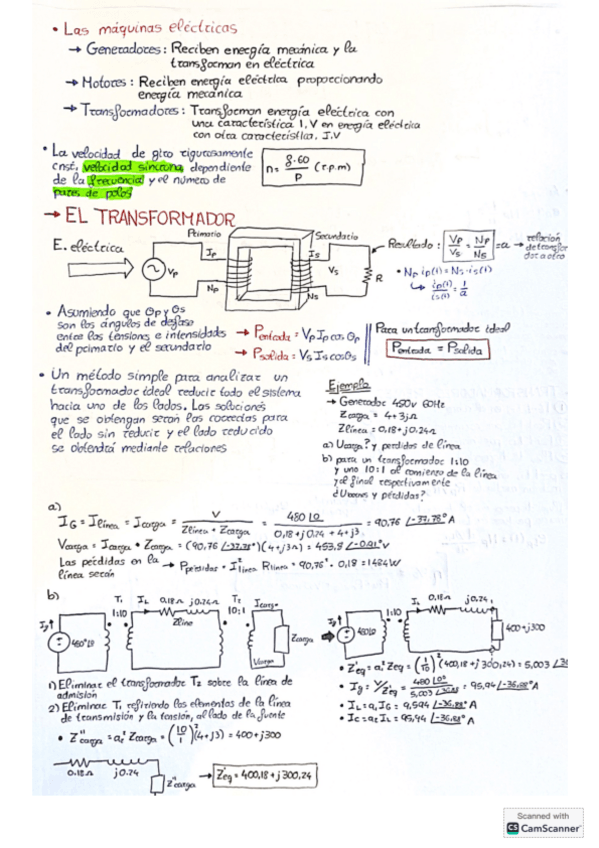 • Las máquinas eléctricas
→ Generadores: Reciben energía mecánica y la
transforman en eléctrica
→ Motores: Reciben energía eléctrica proporcionando
energía mecánica
→ Transformadores: Transforman energía eléctrica con
una característica I, V en energía eléctrica
con otra característica. I.V
• La velocidad de giro rigurosamente
cnst, velocidad síncrona, dependiente
de la frecuencia y el número de
pares de polos
n = f·60 / P (r.p.m)
→ EL TRANSFORMADOR
E. eléctrica
Primario
Secundario
Ip
Vp
Np
Is
Vs
Ns
R
Resultado: Vp/Vs = Np/Ns = a → relación
de transfor
• Np ip(t) = Ns·is(t)
↳ ip(t)/is(t) = 1/a
• Asumiendo que Θp y Θs
son los ángulos de desfase
entre las tensiones e intensidades
del primario y el secundario
→ Pentrada = Vp Ip cos Θp
→ Psalida = Vs Is cosΘs
Para un transformador ideal
Pentrada = Psalida
• Un método simple para analizar un
transformador ideal reducir todo el sistema
hacia uno de los lados. Las soluciones
que se obtengan serán las correctas para
el lado sin reducir y el lado reducido
se obtendrá mediante relaciones
Ejemplo
→ Generador 480v 60Hz
Zcarga = 4+3jΩ
Zlínea = 0,18+j0.24Ω
a) Vcarga? y perdidas de línea
b) para un transformador 1:10
y uno 10:1 al comienzo de la línea
y al final respectivamente
y pérdidas?
a)
IG = Ilínea = Icarga = V / Zlínea + Zcarga = 480 ∠0 / 0,18+j0.24+4+j3 = 90,76 ∠-37,78° A
Vcarga = Icarga · Zcarga = (90,76 ∠-37,78°)(4+j3Ω) = 453,8 ∠-0.91° V
Las pérdidas en la
línea serán → Ppérdidas = I²línea Rlínea = 90,76² · 0,18 = 1484W
b)
Ig
480∠0
T₁
1:10
IL
0,18Ω
j0.24Ω
Zline
T₂
10:1
Icarga
Zcarga
Vcarga
Ig
480∠0
1:10
IL
0,18Ω
j0.24
400+j300
1) Eliminar el transformador T₂ sobre la línea de
admisión
2) Eliminar T₁ refiriendo los elementos de la línea
de transmisión y la tensión, al lado de la fuente
• Z''carga = a² Zcarga = (10/1)²(4+j3) = 400+j300
0.18Ω
j0.24
Z''carga
→ Zeq = 400,18+j300,24
• Z'eq = a² Zeq = (1/10)²(400,18+j300,24) = 5,003
• Ig = V/Z'eq = 480∠0° = 95,94 ∠-36,88° A
• IL = a₁IG = 9,594 ∠-36,88° A
• Ic = a₂IL = 95,94 ∠-36,88° A
Scanned with
CS CamScanner